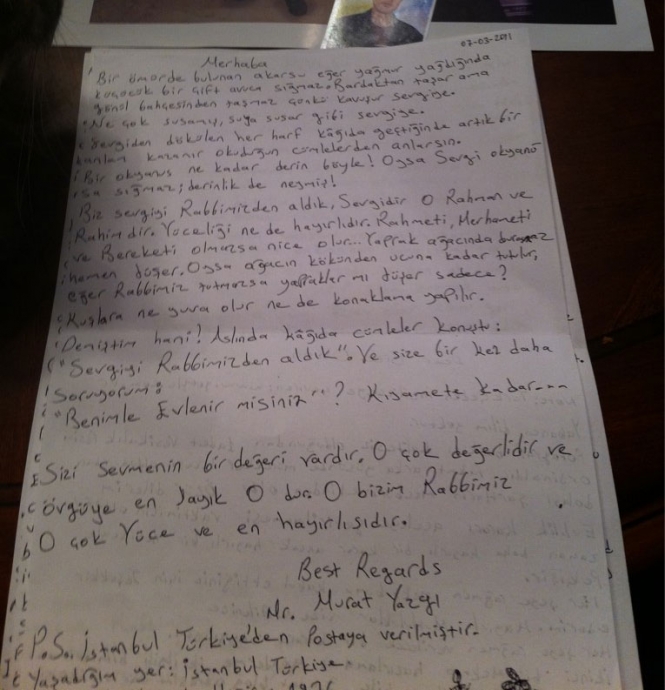 07-03-2011
Merhaba
Bir ömürde bulunan akarsu eğer yağmur yağdığında
küçücük bir çift avuca sığmaz. Bardaktan taşar ama
gönül bahçesinden taşmaz çünkü kavuşur sevgiye.
Ne çok susamış, suya susar gibi sevgiye.
Sevgiden dökülen her harf kâğıda geçtiğinde artık bir
anlam kazanır okuduğun cümlelerden anlarsın.
Bir okyanus ne kadar derin böyle! Oysa Sevgi okyanu
sa sığmaz; derinlik de neymiş!
Biz sevgiyi Rabbimizden aldık, Sevgidir O Rahman ve
Rahim dir. Yüceliği ne de hayırlıdır. Rahmeti, Merhameti
ve Bereketi olmazsa nice olur... Yaprak ağacında durmaz
hemen düşer. Oysa ağacın kökünden ucuna kadar tutulur,
eğer Rabbimiz tutmazsa yapraklar mı düşer sadece?
Kuşlara ne yuva olur ne de konaklama yapılır.
Demiştim hani! Aslında kâğıda cümleler konuştu:
"Sevgiyi Rabbimizden aldık". Ve size bir kez daha
Soruyorum:
"Benimle Evlenir misiniz"? Kıyamete kadar---
Sizi Sevmenin bir değeri vardır. O çok değerlidir ve
övgüye en layık O dur. O bizim Rabbimiz
O çok Yüce ve en hayırlısıdır.
Best Regards
Mr. Murat Yazgı
P.S. İstanbul Türkiye'den Postaya verilmiştir.
Yaşadığım yer: İstanbul Türkiye